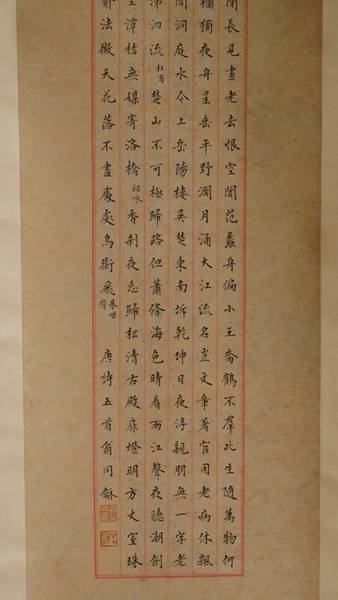 間長見畫老去恨空聞范蠡舟偏小王喬鶴不群此生隨萬物何
檣獨夜舟星垂平野濶月涌大江流名豈文章著官因老病休飄
聞洞庭水今上岳陽樓吳楚東南坼乾坤日夜浮親朋無一字老
涕泗流杜甫楚山不可極歸路但蕭條海色晴看雨江聲夜聽潮劍
潭桔無媒寄洛橋祖咏香刹夜忘歸松清古殿扉燈明方丈室珠
喻法微天花落不盡處處鳥銜飛綦毋潛唐詩五首翁同龢